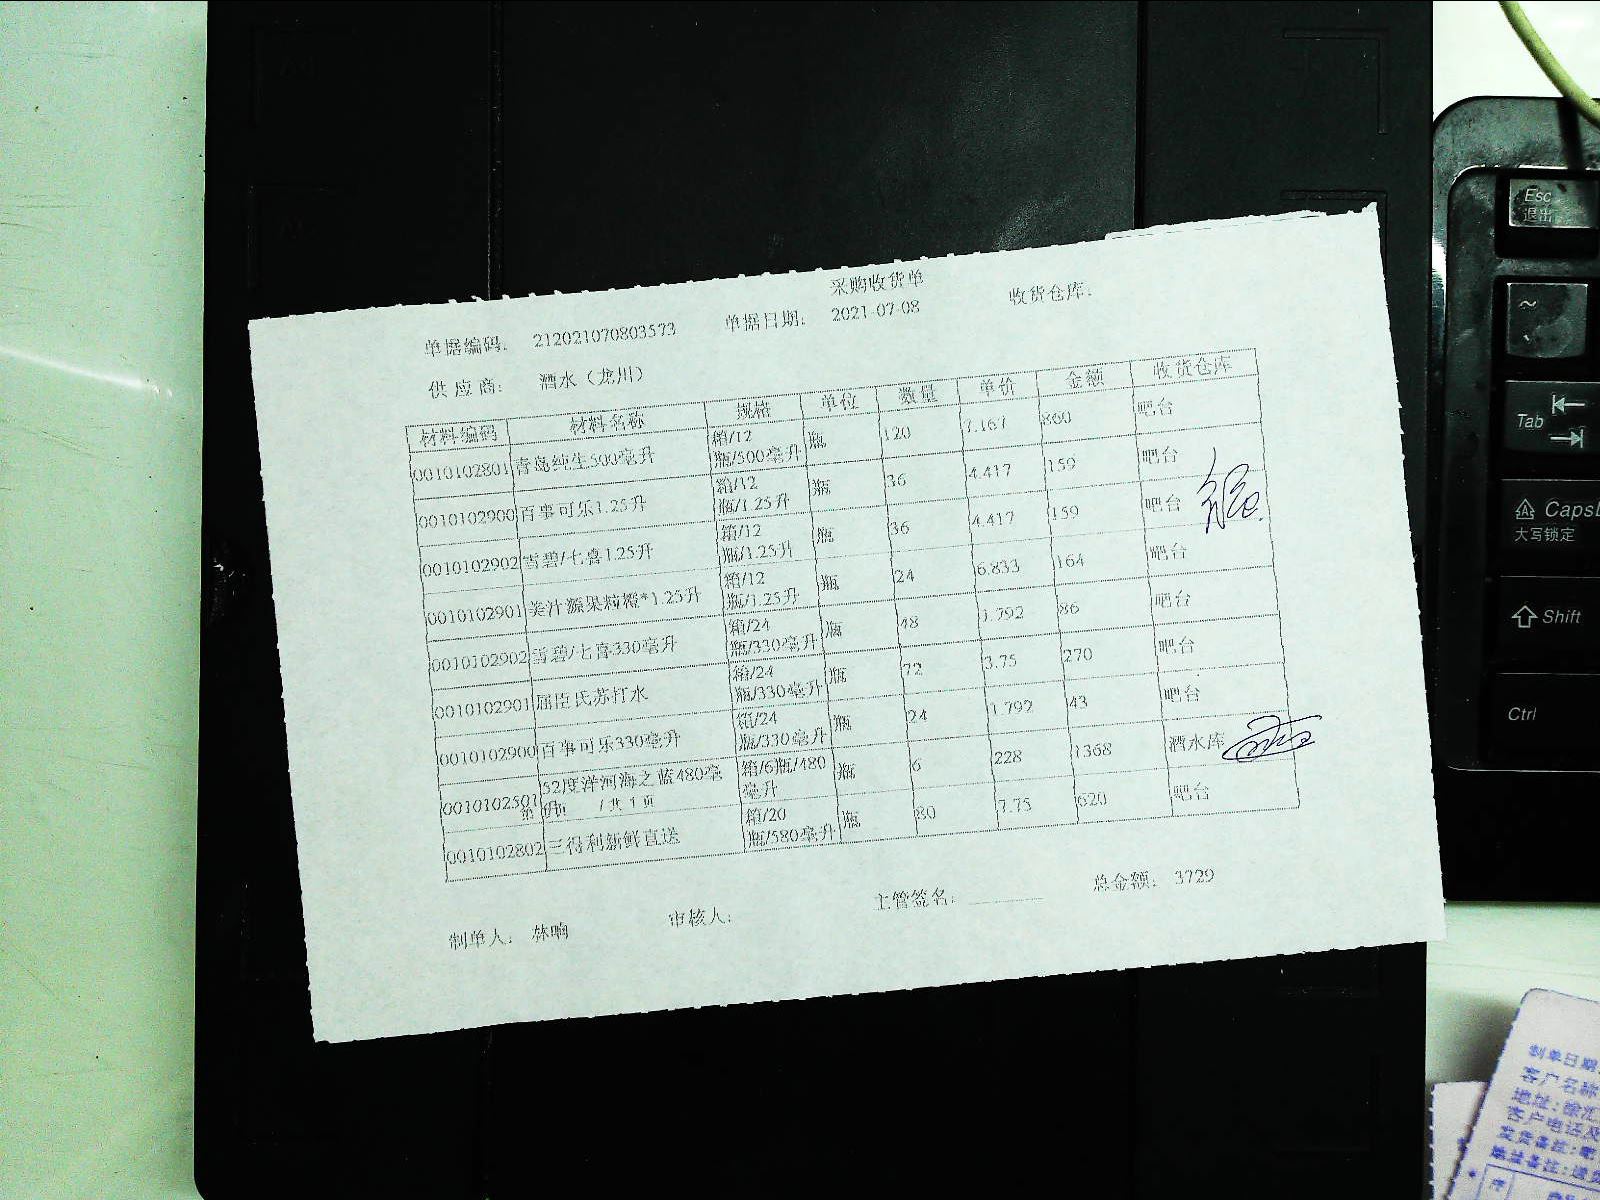 采购收货单
单据编码: 212021070803573 单据日期: 2021-07-08 收货仓库:
供 应 商: 酒水(龙川)
材料编码 材料名称 规格 单位 数量 单价 金额 收货仓库
0010102801 青岛纯生500毫升 箱/12瓶/500毫升 瓶 120 7.167 860 吧台
0010102900 百事可乐1.25升 箱/12瓶/1.25升 瓶 36 4.417 159 吧台
0010102902 雪碧/七喜1.25升 箱/12瓶/1.25升 瓶 36 4.417 159 吧台
0010102901 美汁源果粒橙*1.25升 箱/12瓶/1.25升 瓶 24 6.833 164 吧台
0010102902 雪碧/七喜330毫升 箱/24瓶/330毫升 瓶 48 1.792 86 吧台
0010102901 屈臣氏苏打水 箱/24瓶/330毫升 瓶 72 3.75 270 吧台
0010102900 百事可乐330毫升 箱/24瓶/330毫升 瓶 24 1.792 43 吧台
0010102501 52度洋河海之蓝480毫升 箱/6瓶/480毫升 瓶 6 228 1368 酒水库
第 1页 / 共 1 页
0010102802 三得利新鲜直送 箱/20瓶/580毫升 瓶 80 7.75 620 吧台
制单人: 林响 审核人: 主管签名: 总金额: 3729
Esc
退出
~
Tab
大写锁定
Shift
Ctrl
制单日期
客户名称
客户电话及